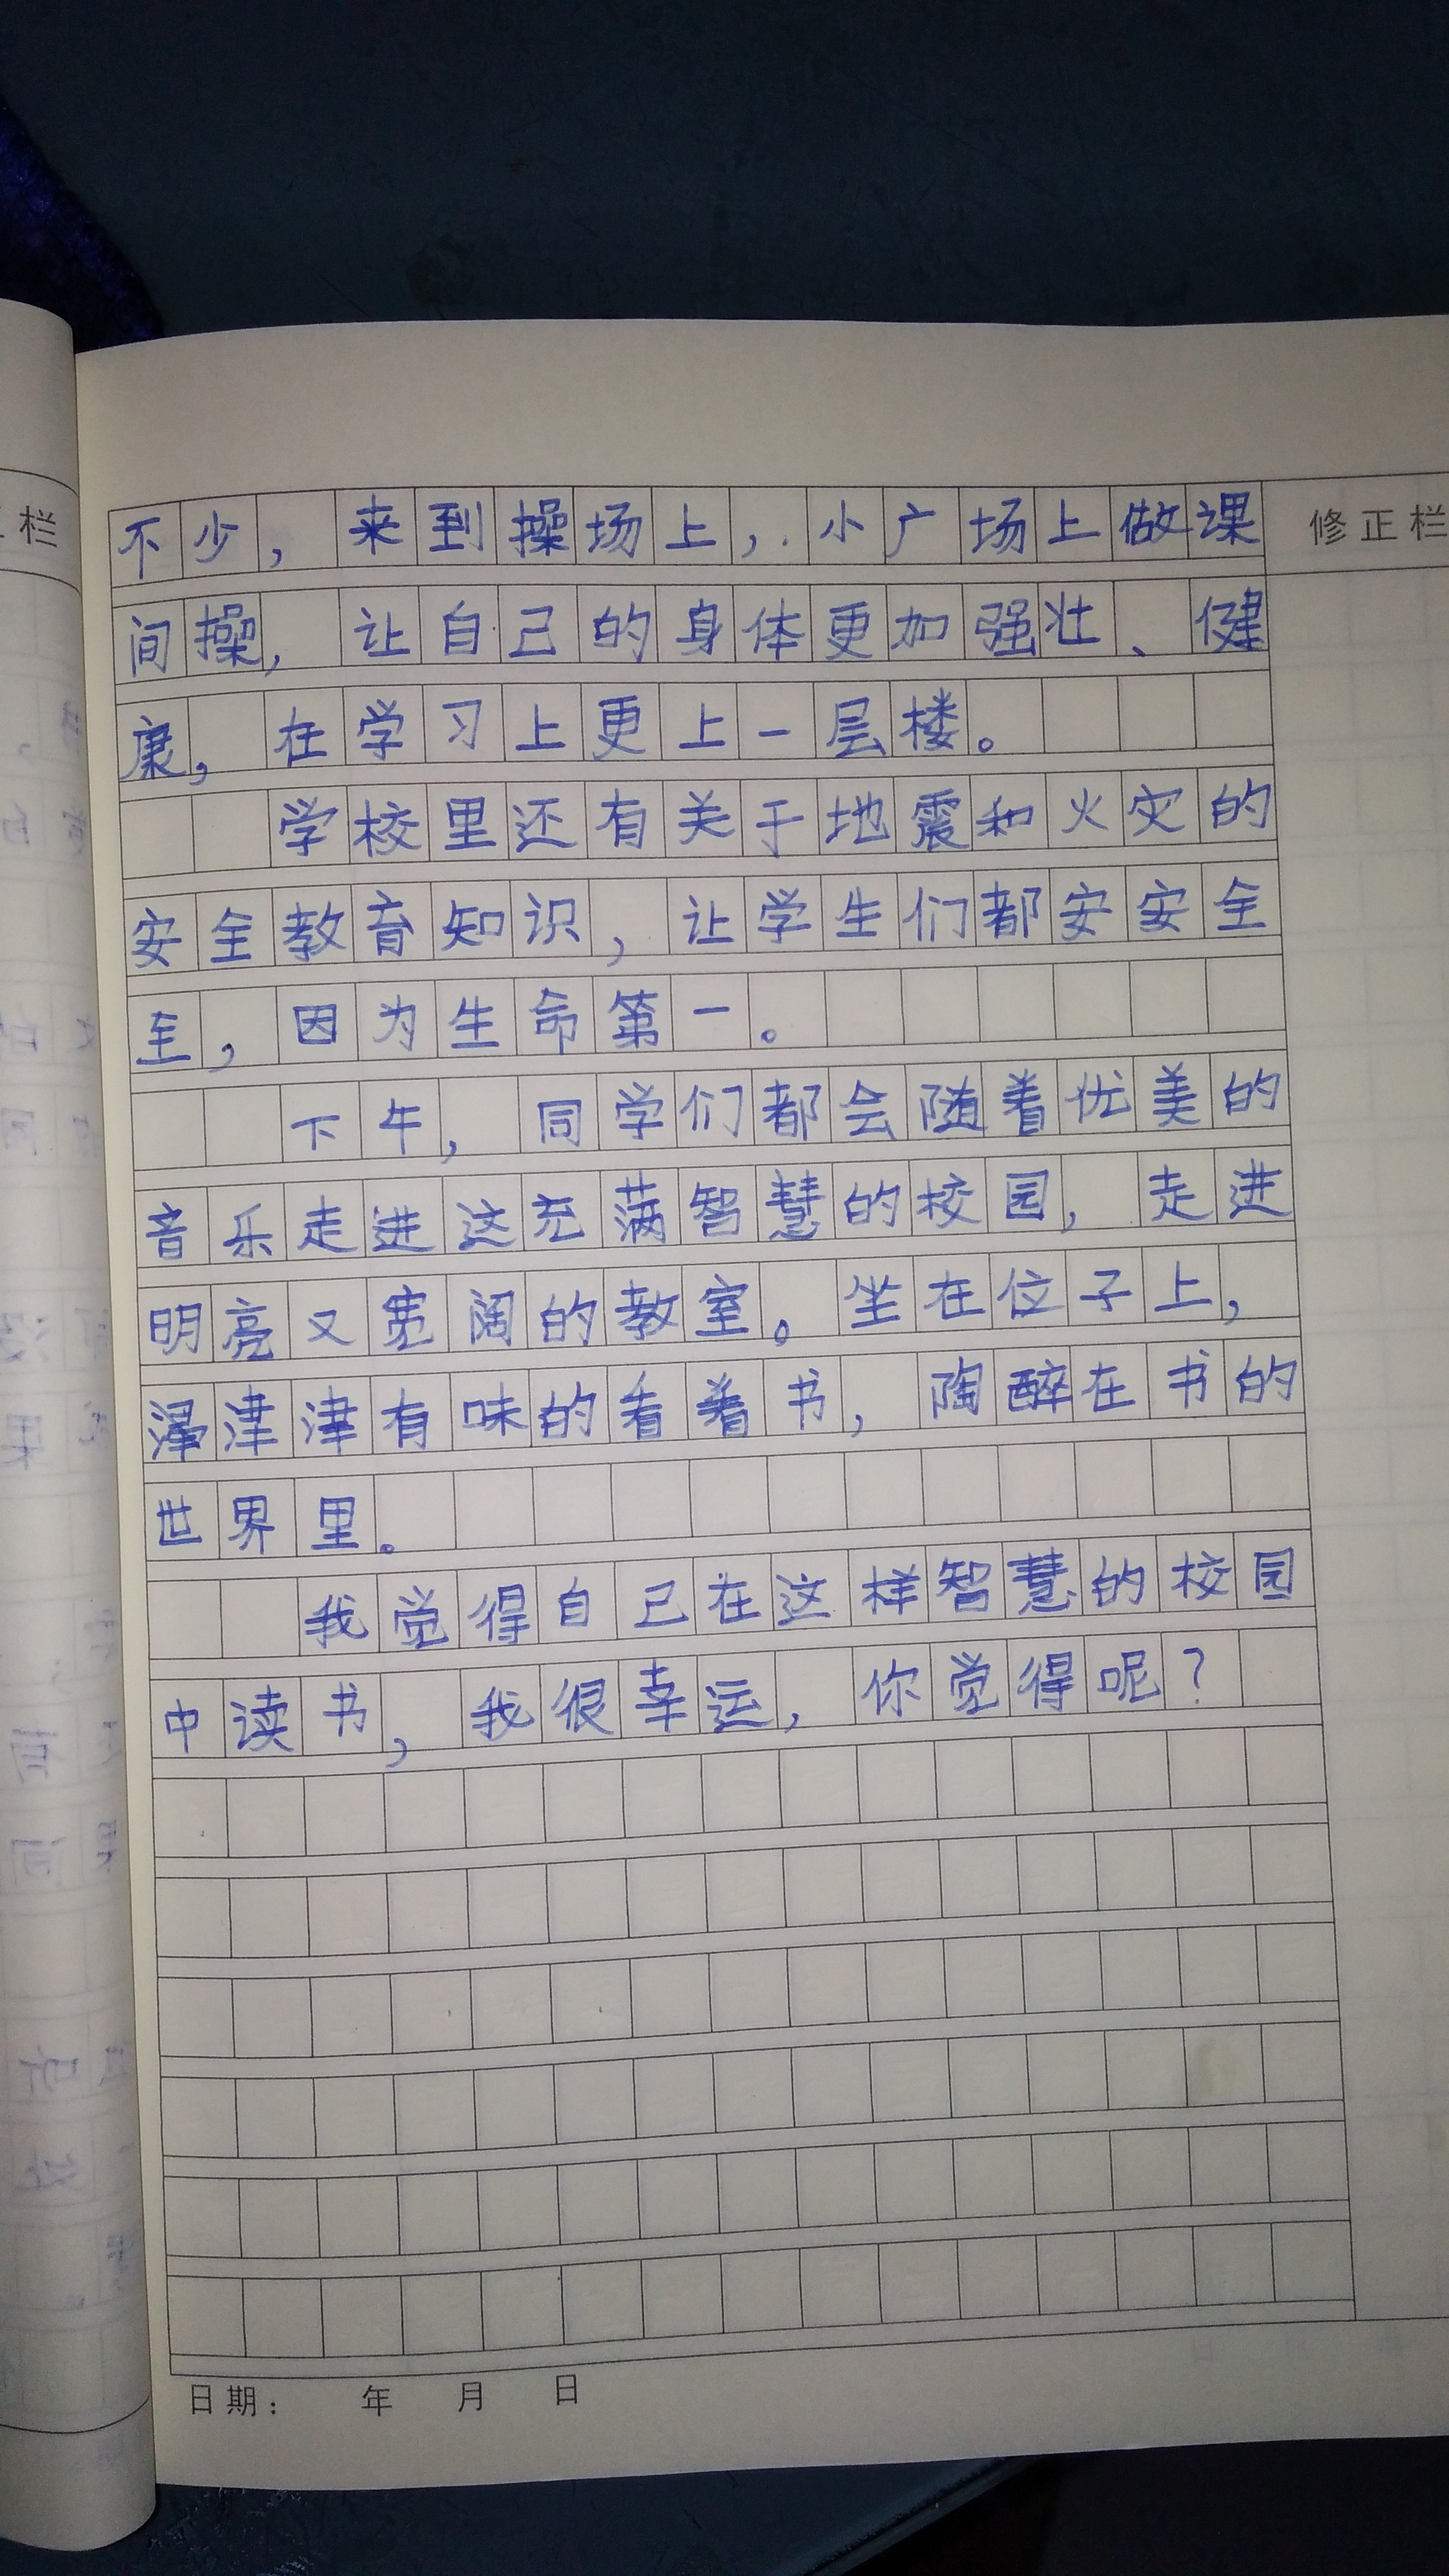 不少，来到操场上，小广场上做课
修正栏
间操，让自己的身体更加强壮、健
康，在学习上更上一层楼。
学校里还有关于地震和火灾的
安全教育知识，让学生们都安安全
至，因为生命第一。
下午，同学们都会随着优美的
音乐走进这充满智慧的校园，走进
明亮又宽阔的教室。坐在位子上，
津津有味的看着书，陶醉在书的
世界里。
我觉得自己在这样智慧的校园
中读书，我很幸运，你觉得呢？
日期： 年 月 日
正栏